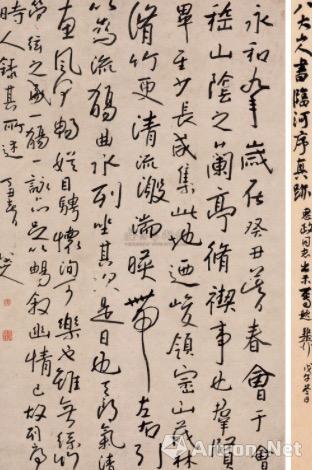 八大山人書臨河序真跡
惠政同志出示
戊午冬日
永和九年歲在癸丑暮春會于會
稽山陰之蘭亭脩禊事也羣賢
畢至少長咸集此地迺峻領崇山茂林
脩竹更清流激湍暎帶左右引
以為流觴曲水列坐其次是日也天朗氣清
惠風和暢娛目騁懷洵可樂也雖無絲竹
管弦之盛一觴一詠亦足以暢敘幽情已故列序
時人錄其所述
Artron.Net